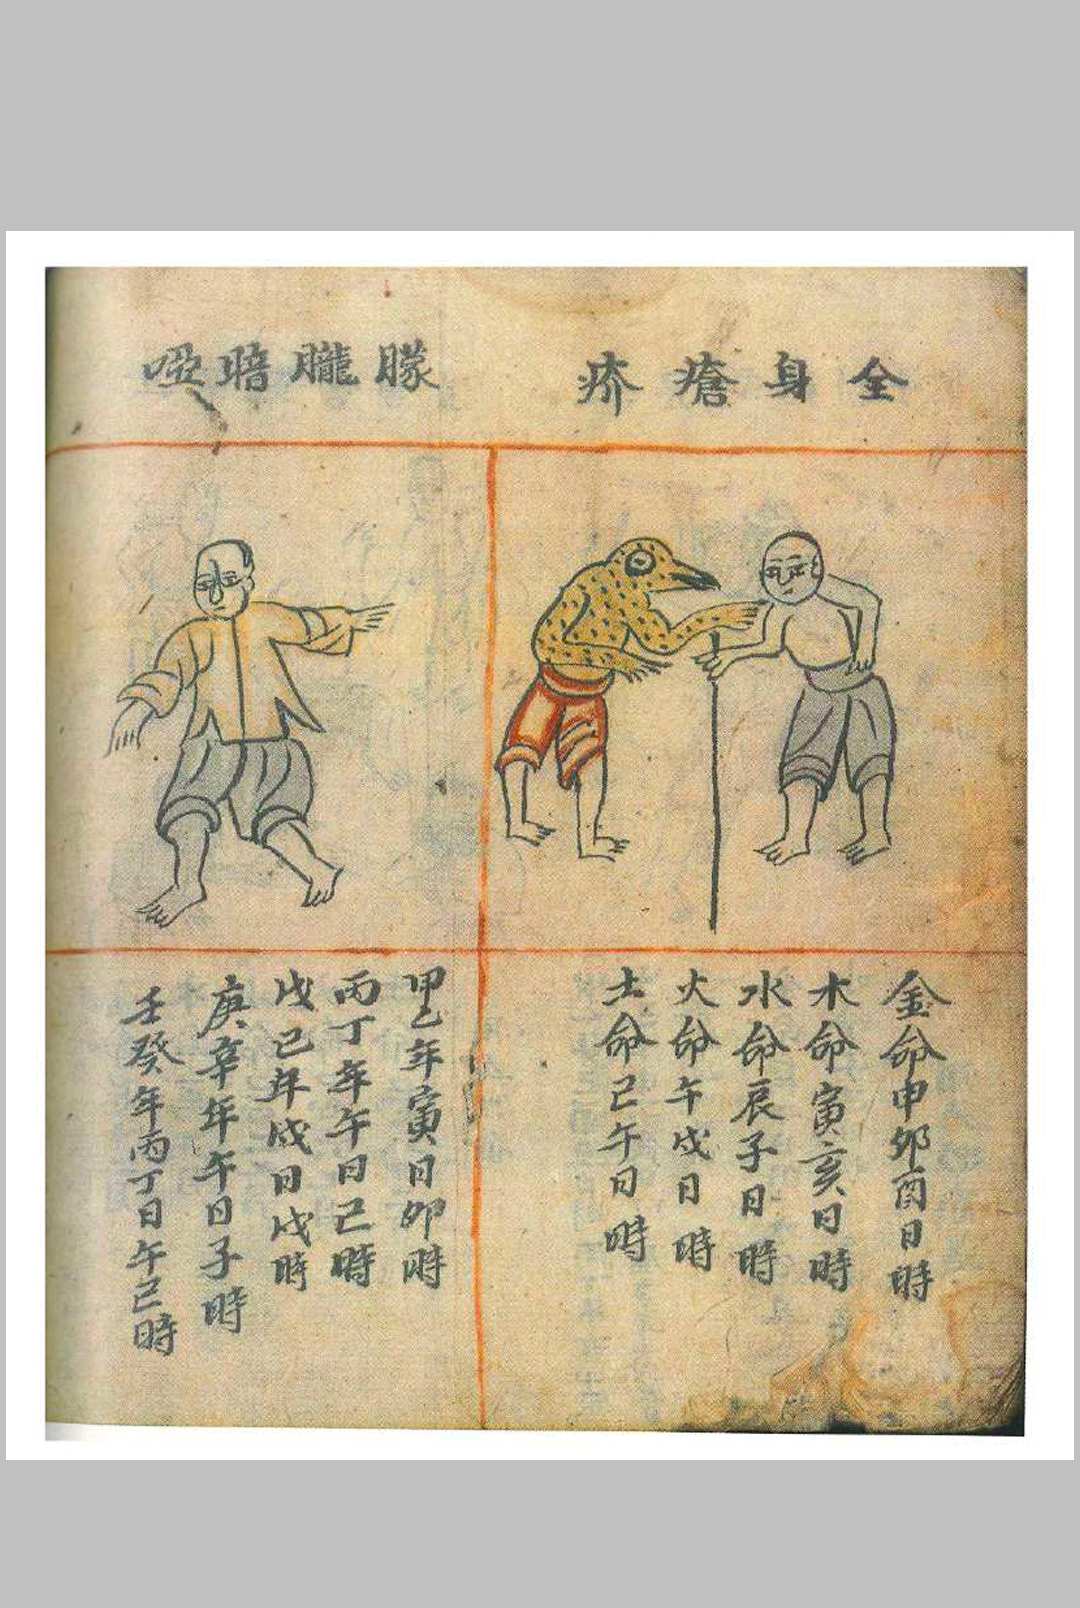 全身瘡疥
金命申卯酉日時
木命寅亥日時
水命辰子日時
火命午戌日時
土命己午日時
朦朧暗啞
甲乙年寅日卯時
丙丁年午日己時
戊己年戌日戌時
庚辛年午日子時
壬癸年丙丁日午己時